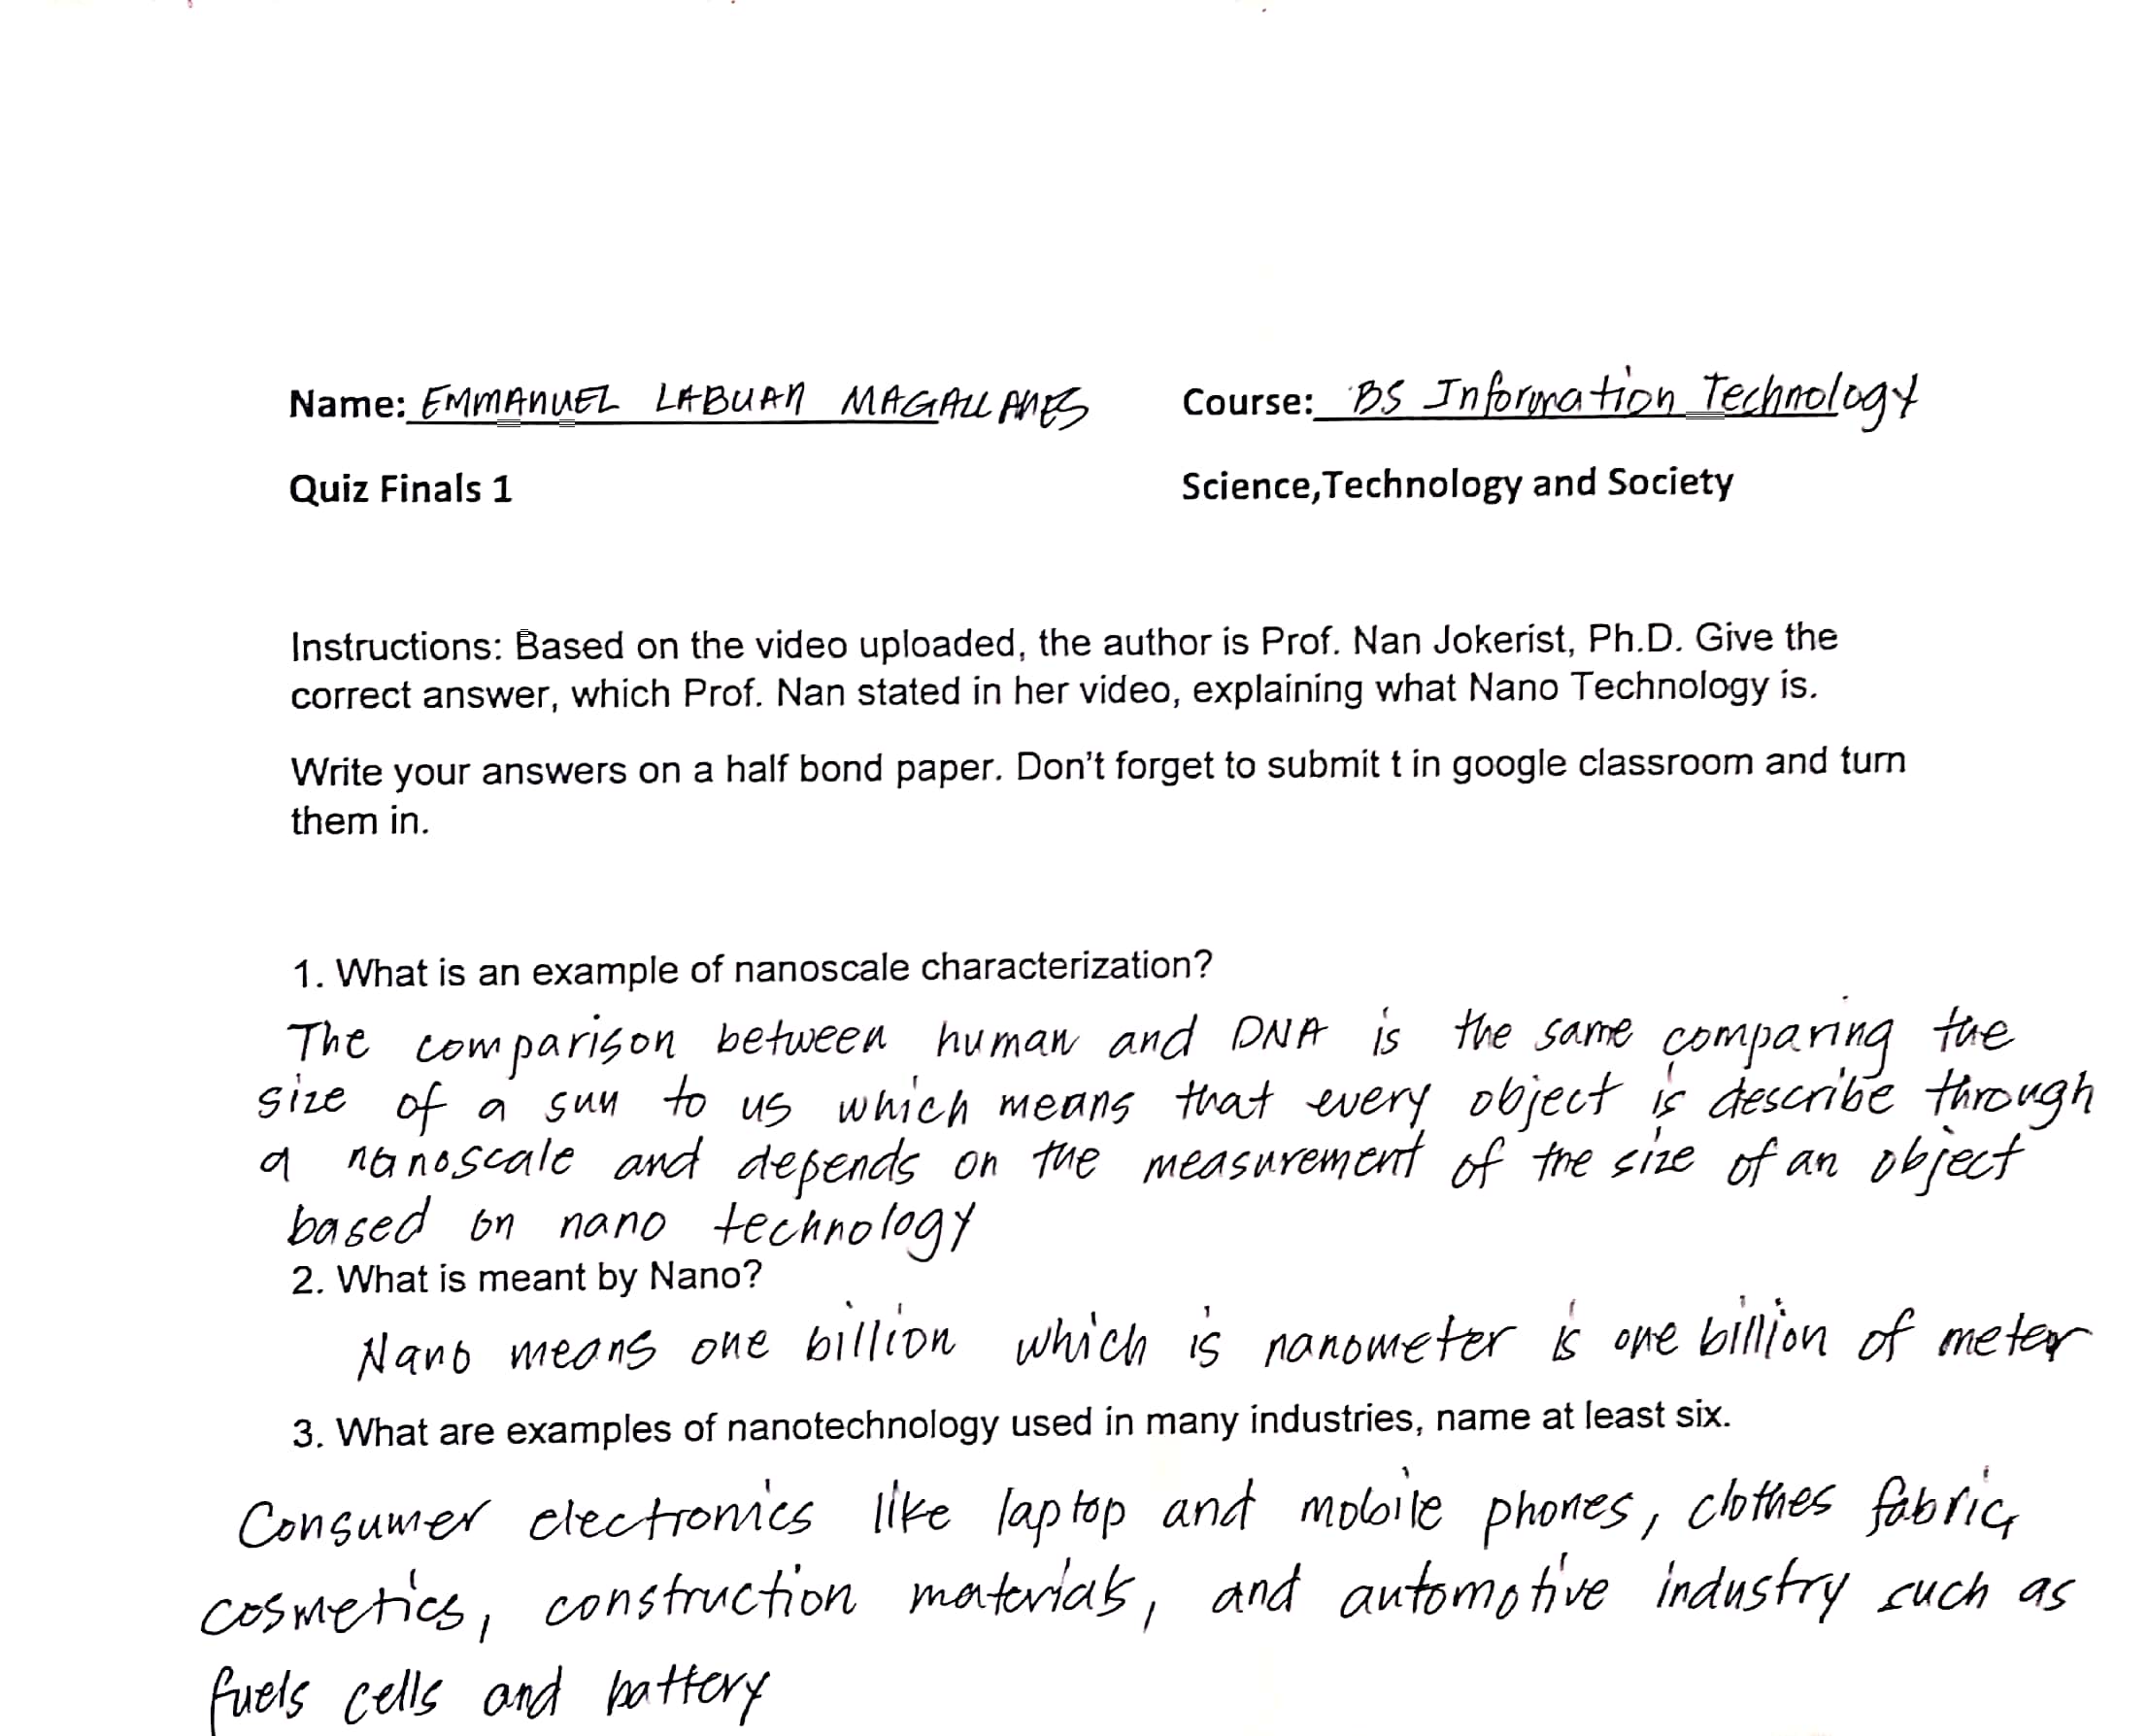 Name: EMMANUEL LABUAN MAGALLANES Course: BS Information Technology
Quiz Finals 1 Science,Technology and Society
Instructions: Based on the video uploaded, the author is Prof. Nan Jokerist, Ph.D. Give the
correct answer, which Prof. Nan stated in her video, explaining what Nano Technology is.
Write your answers on a half bond paper. Don't forget to submit t in google classroom and turn
them in.
1. What is an example of nanoscale characterization?
The comparison between human and DNA is the same comparing the
size of a sun to us which means that every object is describe through
a nanoscale and depends on the measurement of the size of an object
based on nano technology
2. What is meant by Nano?
Nano means one billion which is nanometer is one billion of meter
3. What are examples of nanotechnology used in many industries, name at least six.
Consumer electronics like laptop and mobile phones, clothes fabric,
cosmetics, construction materials, and automotive industry such as
fuels cells and battery